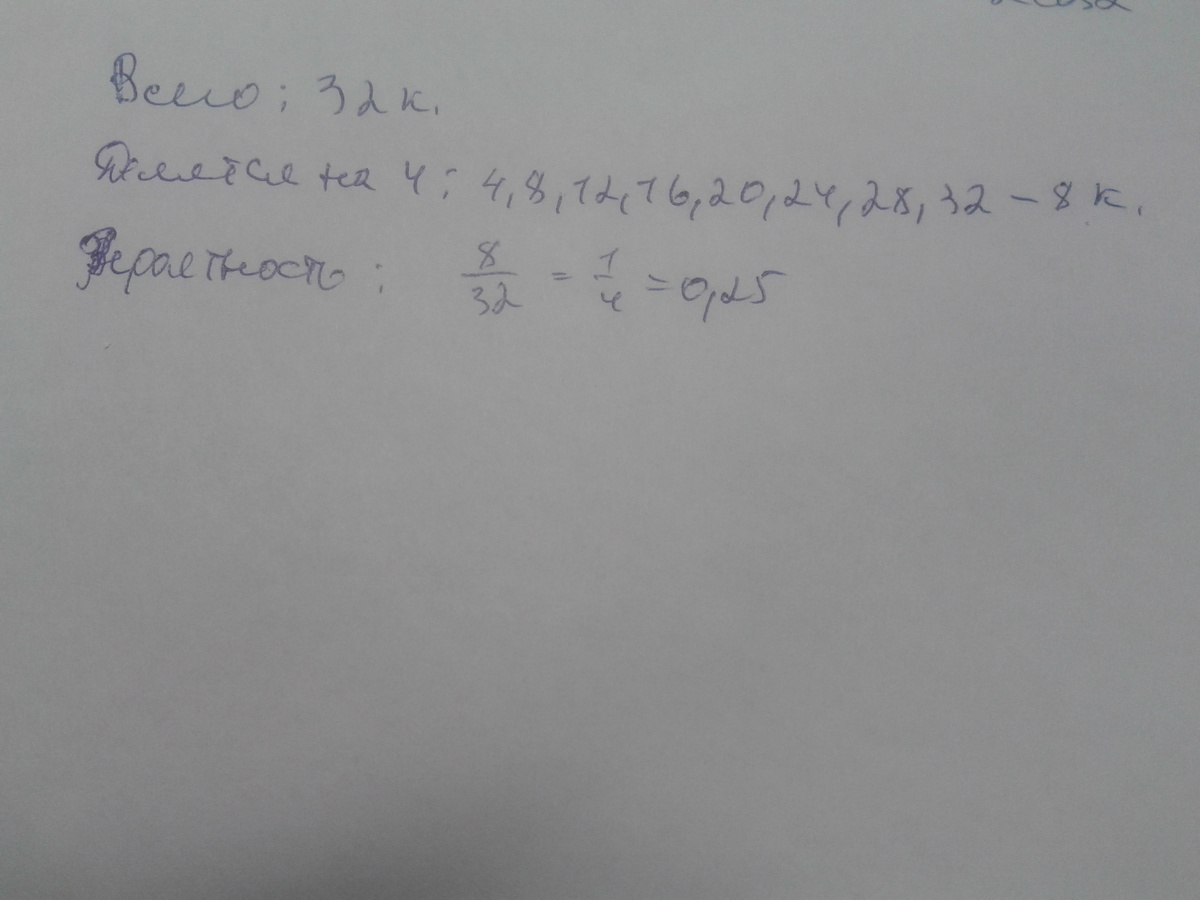 Всего: 32 к.
Делятся на 4: 4, 8, 12, 16, 20, 24, 28, 32 – 8 к.
Вероятность: 8/32 = 1/4 = 0,25